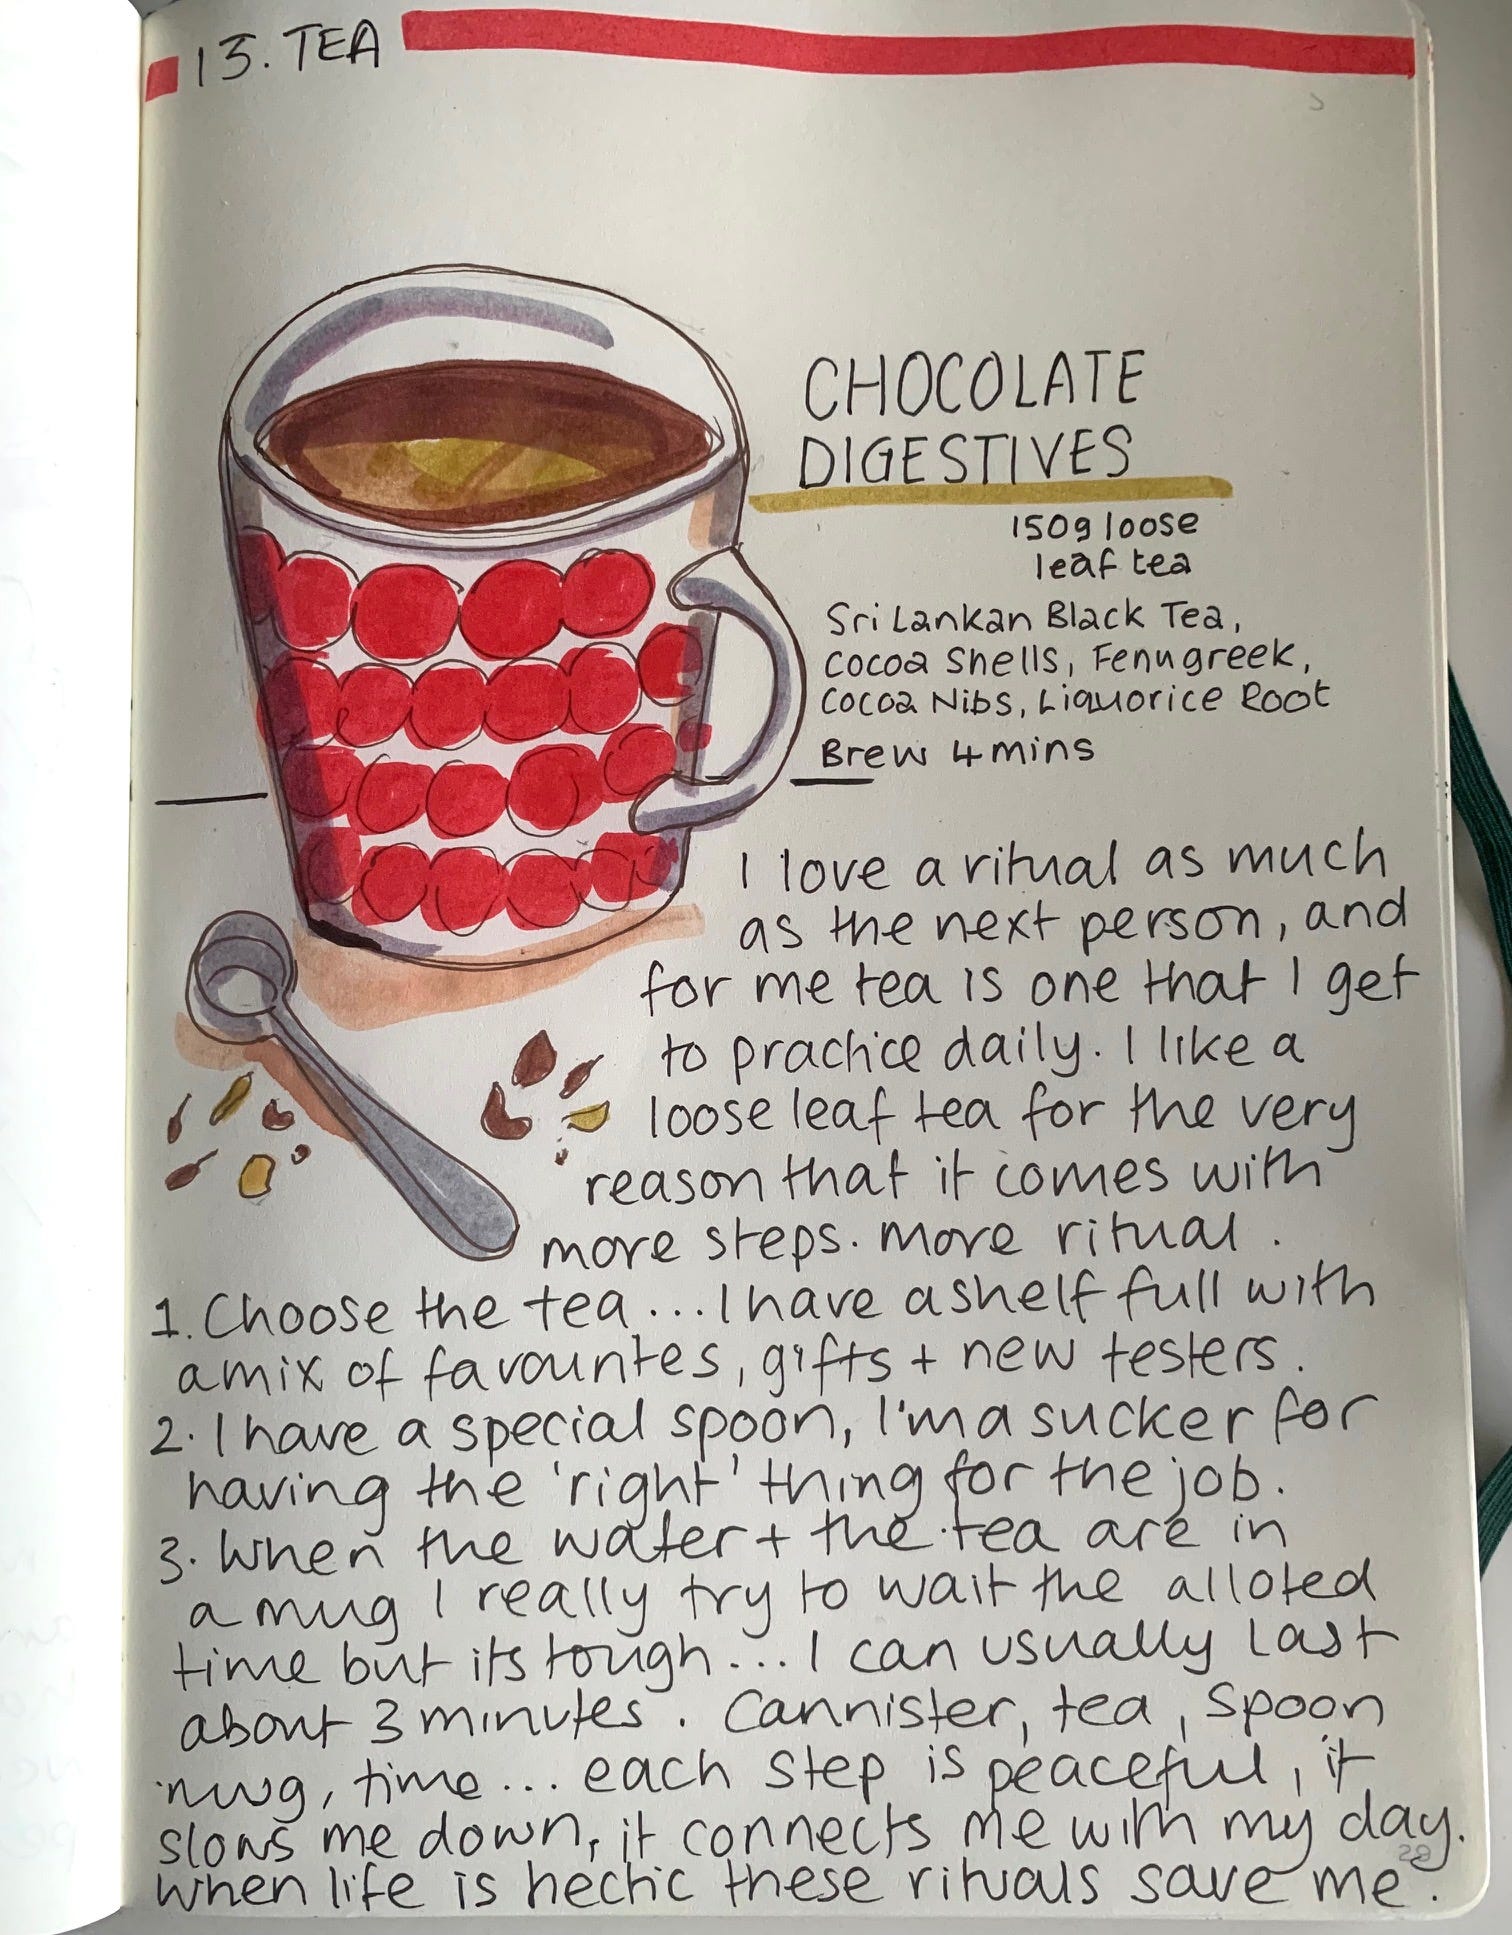 13. TEA
CHOCOLATE
DIGESTIVES
150g loose
leaf tea
Sri Lankan Black Tea,
Cocoa Shells, Fenugreek,
Cocoa Nibs, Liquorice Root
Brew 4 mins
I love a ritual as much
as the next person, and
for me tea is one that I get
to practice daily. I like a
loose leaf tea for the very
reason that it comes with
more steps. more ritual.
1. Choose the tea... I have a shelf full with
a mix of favourites, gifts + new testers.
2. I have a special spoon, I'm a sucker for
having the 'right' thing for the job.
3. When the water + the tea are in
a mug I really try to wait the alloted
time but its tough... I can usually last
about 3 minutes. Cannister, tea, spoon
mug, time... each step is peaceful, it
slows me down, it connects me with my day.
When life is hectic these rituals save me.
28